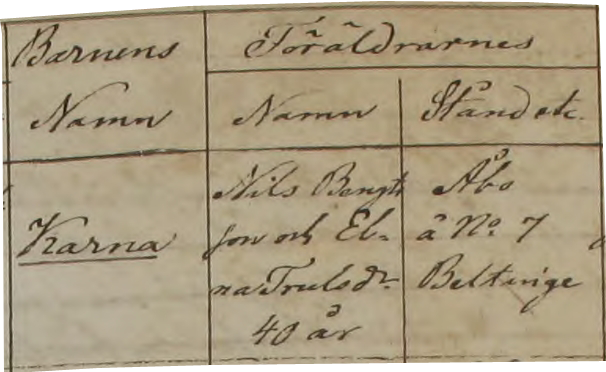 Barnens
Namn
Föräldrarnes
Namn
Stånd etc.
Karna
Nils Bengts
son och El-
na Trulsdr.
40 år
Åbo
å No. 7
Beltinge